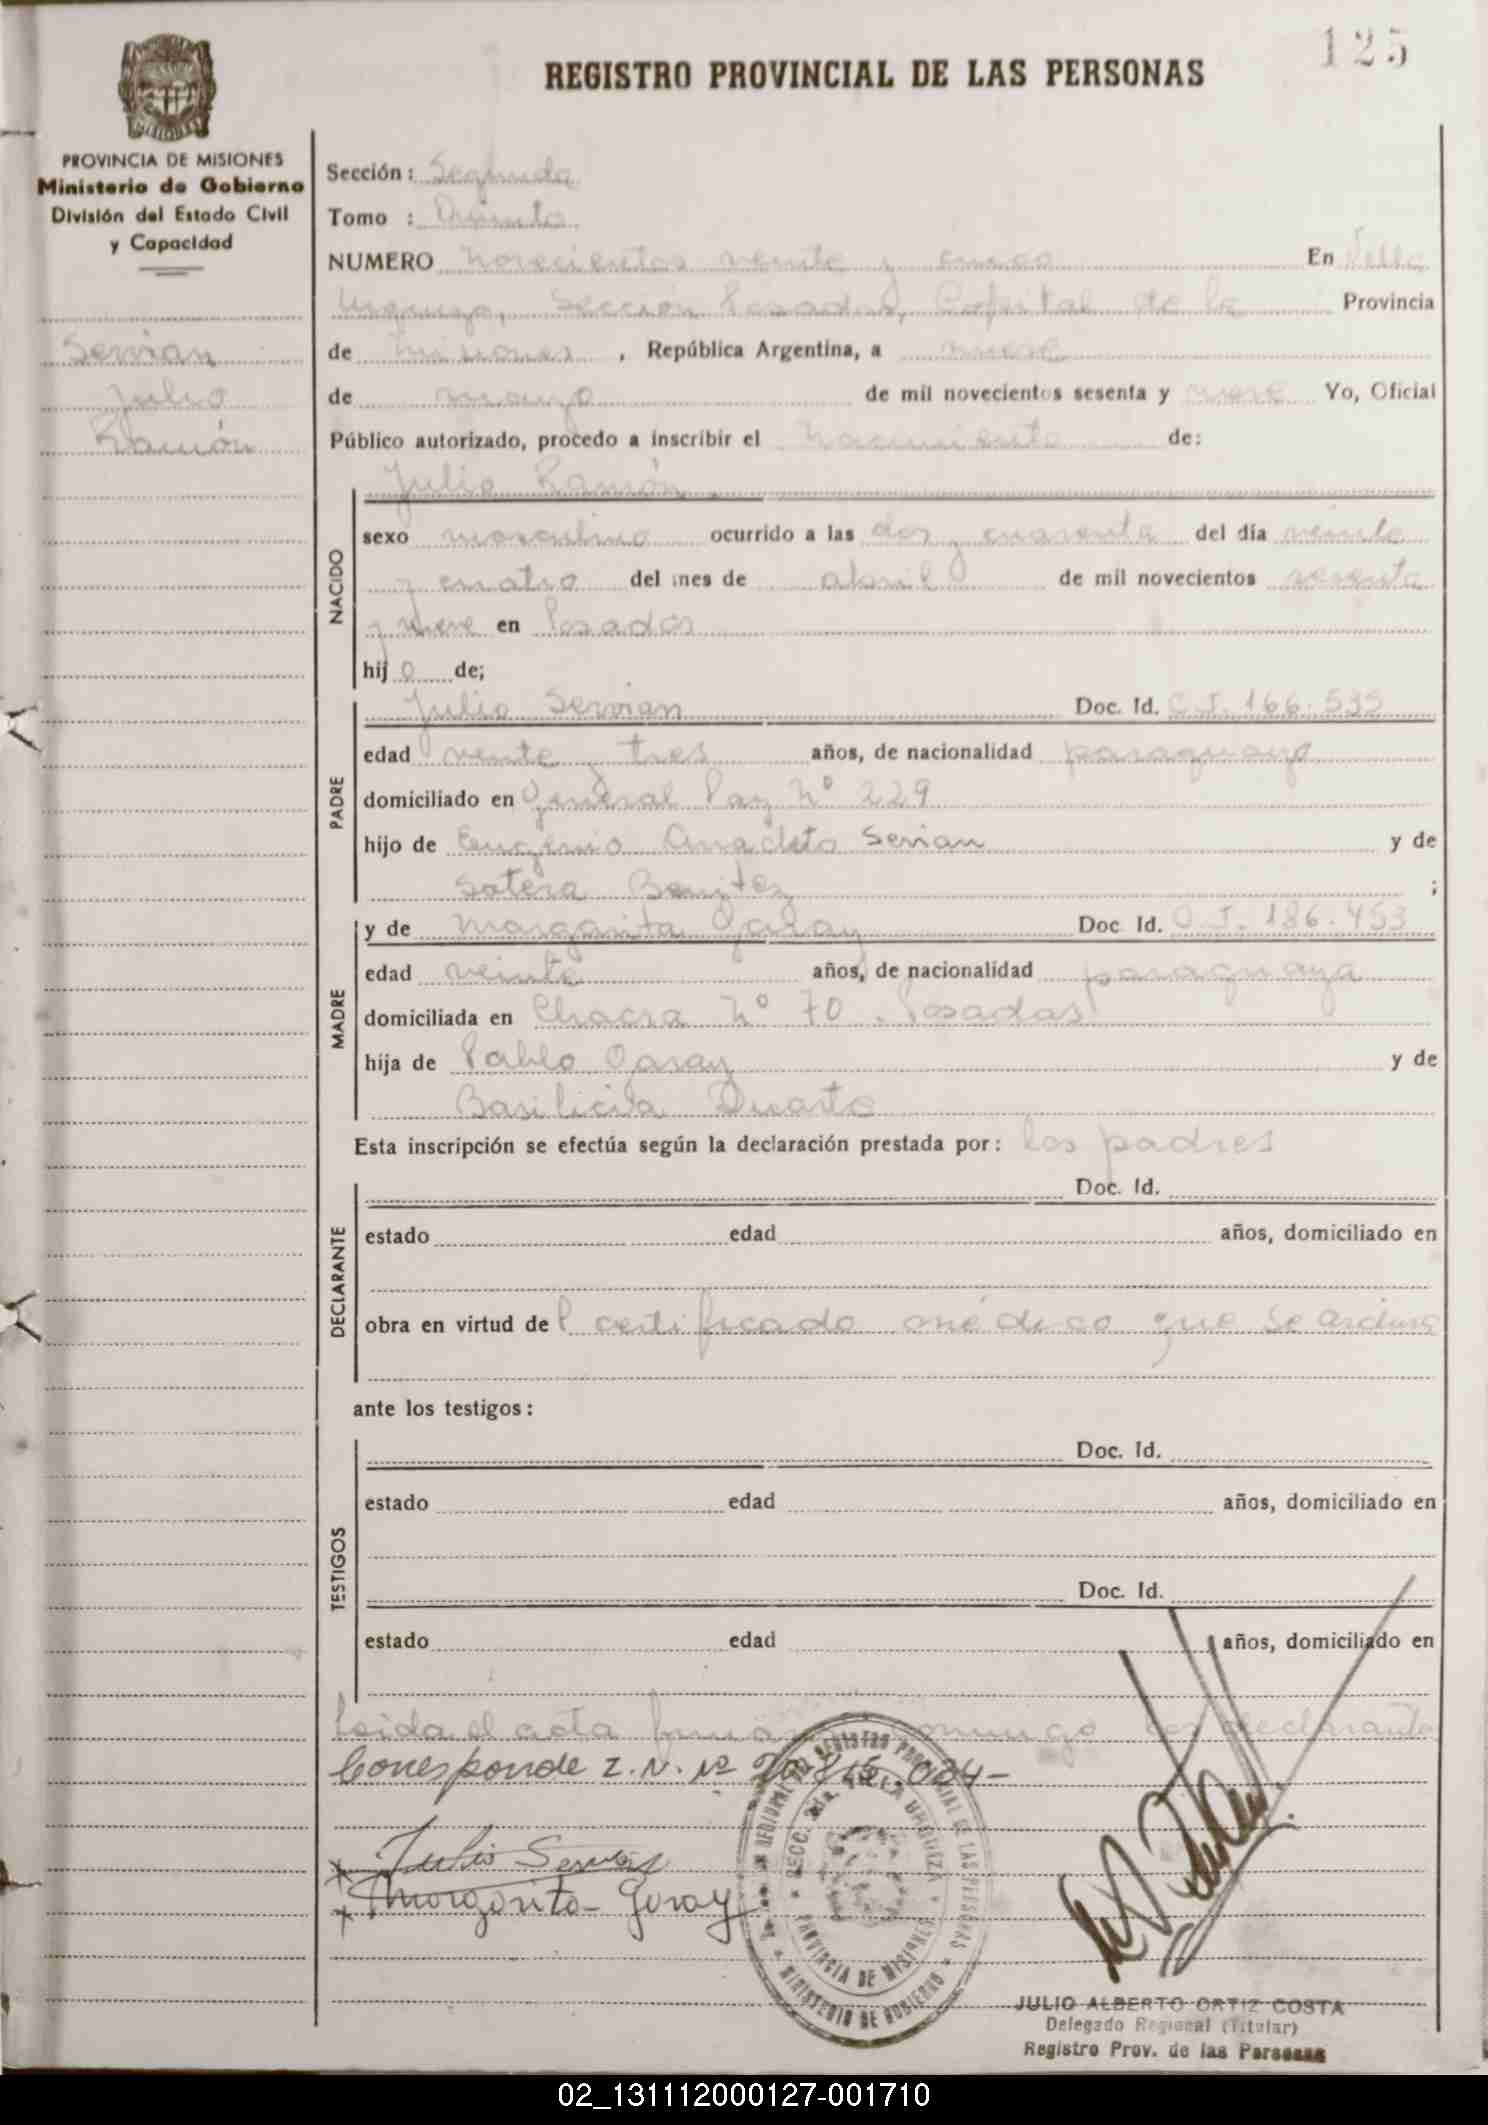 125
REGISTRO PROVINCIAL DE LAS PERSONAS
PROVINCIA DE MISIONES
Ministerio de Gobierno
División del Estado Civil
y Capacidad
Servian
Julio
Ramón
Sección: Segunda
Tomo :
NUMERO novecientos veinte y cinco En Villa
Urquiza, Sección Posadas, Capital de la Provincia
de Misiones, República Argentina, a nueve
de mayo de mil novecientos sesenta y nueve Yo, Oficial
Público autorizado, procedo a inscribir el nacimiento de:
Julio Ramón
NACIDO
sexo masculino ocurrido a las dos y cuarenta del día veinte
y cuatro del mes de abril de mil novecientos sesenta
y nueve en Posadas
hijo de;
PADRE
Julio Servian Doc. Id. C.I. 166.535
edad veinte y tres años, de nacionalidad paraguayo
domiciliado en General Paz Nº 229
hijo de Eugenio Anacleto Servian y de
Sotera Benitez ;
MADRE
y de Margarita Garay Doc. Id. C.I. 186.453
edad veinte años, de nacionalidad paraguaya
domiciliada en Chacra Nº 70 - Posadas
hija de Pablo Garay y de
Duarte
Esta inscripción se efectúa según la declaración prestada por: los padres
DECLARANTE
Doc. Id.
estado edad años, domiciliado en
obra en virtud del certificado médico que se archiva
ante los testigos:
TESTIGOS
Doc. Id.
estado edad años, domiciliado en
Doc. Id.
estado edad años, domiciliado en
Leida el acta firman conmigo los declarantes
Corresponde L.N. Nº 034-
Julio Servian
Margarita Garay
SECC. 2da. VILLA URQUIZA
PROVINCIA DE MISIONES
MINISTERIO DE GOBIERNO
REGISTRO PROVINCIAL DE LAS PERSONAS
JULIO ALBERTO ORTIZ COSTA
Delegado Regional (Titular)
Registro Prov. de las Personas
02_131112000127-001710